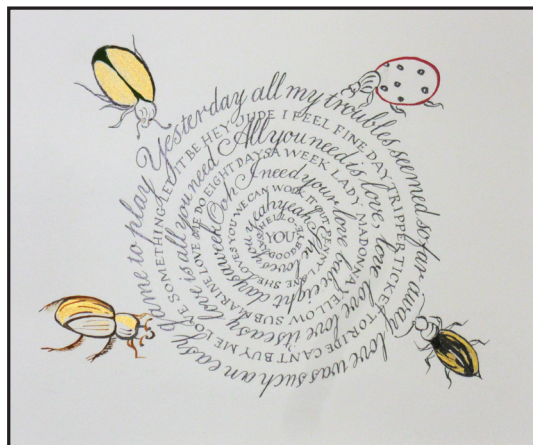 Yesterday all my troubles seemed so far away love was such an easy game to play
LET IT BE HEY JUDE I FEEL FINE DAY TRIPPER TICKET TO RIDE CANT BUY ME LOVE SOMETHING
All you need is love, love love love its easy love is all you need
EIGHT DAYS A WEEK LADY MADONNA YELLOW SUBMARINE LOVE ME DO
Ooh I need your love babe eight days a week
WE CAN WORK IT OUT PENNY LANE SHE LOVES YOU
She loves you yeah yeah
HELLO
YOU